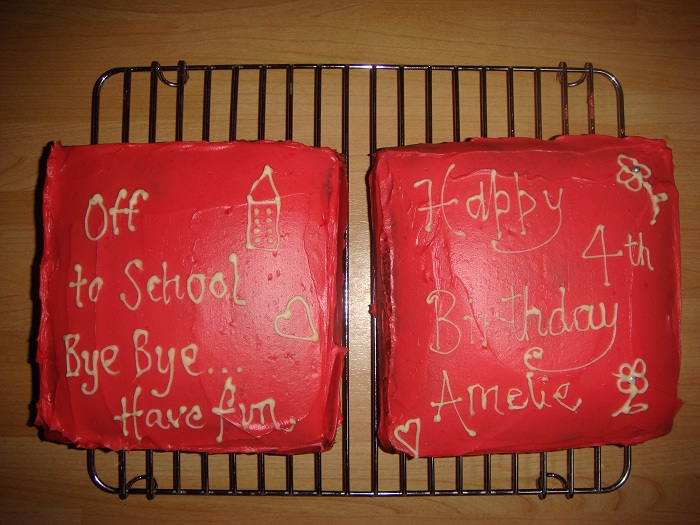 Off
to School
Bye Bye...
Have fun.
Happy
4th
Birthday
Amelie